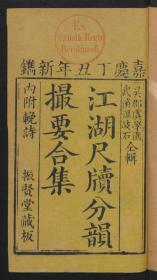 嘉慶丁丑年新鐫
吳郡虞學圃
武溪溫岐石
仝輯
江湖尺牘分韻
撮要合集
內附輓詩 振賢堂藏板
Ex
Biblioth. Regia
Berolinensi.